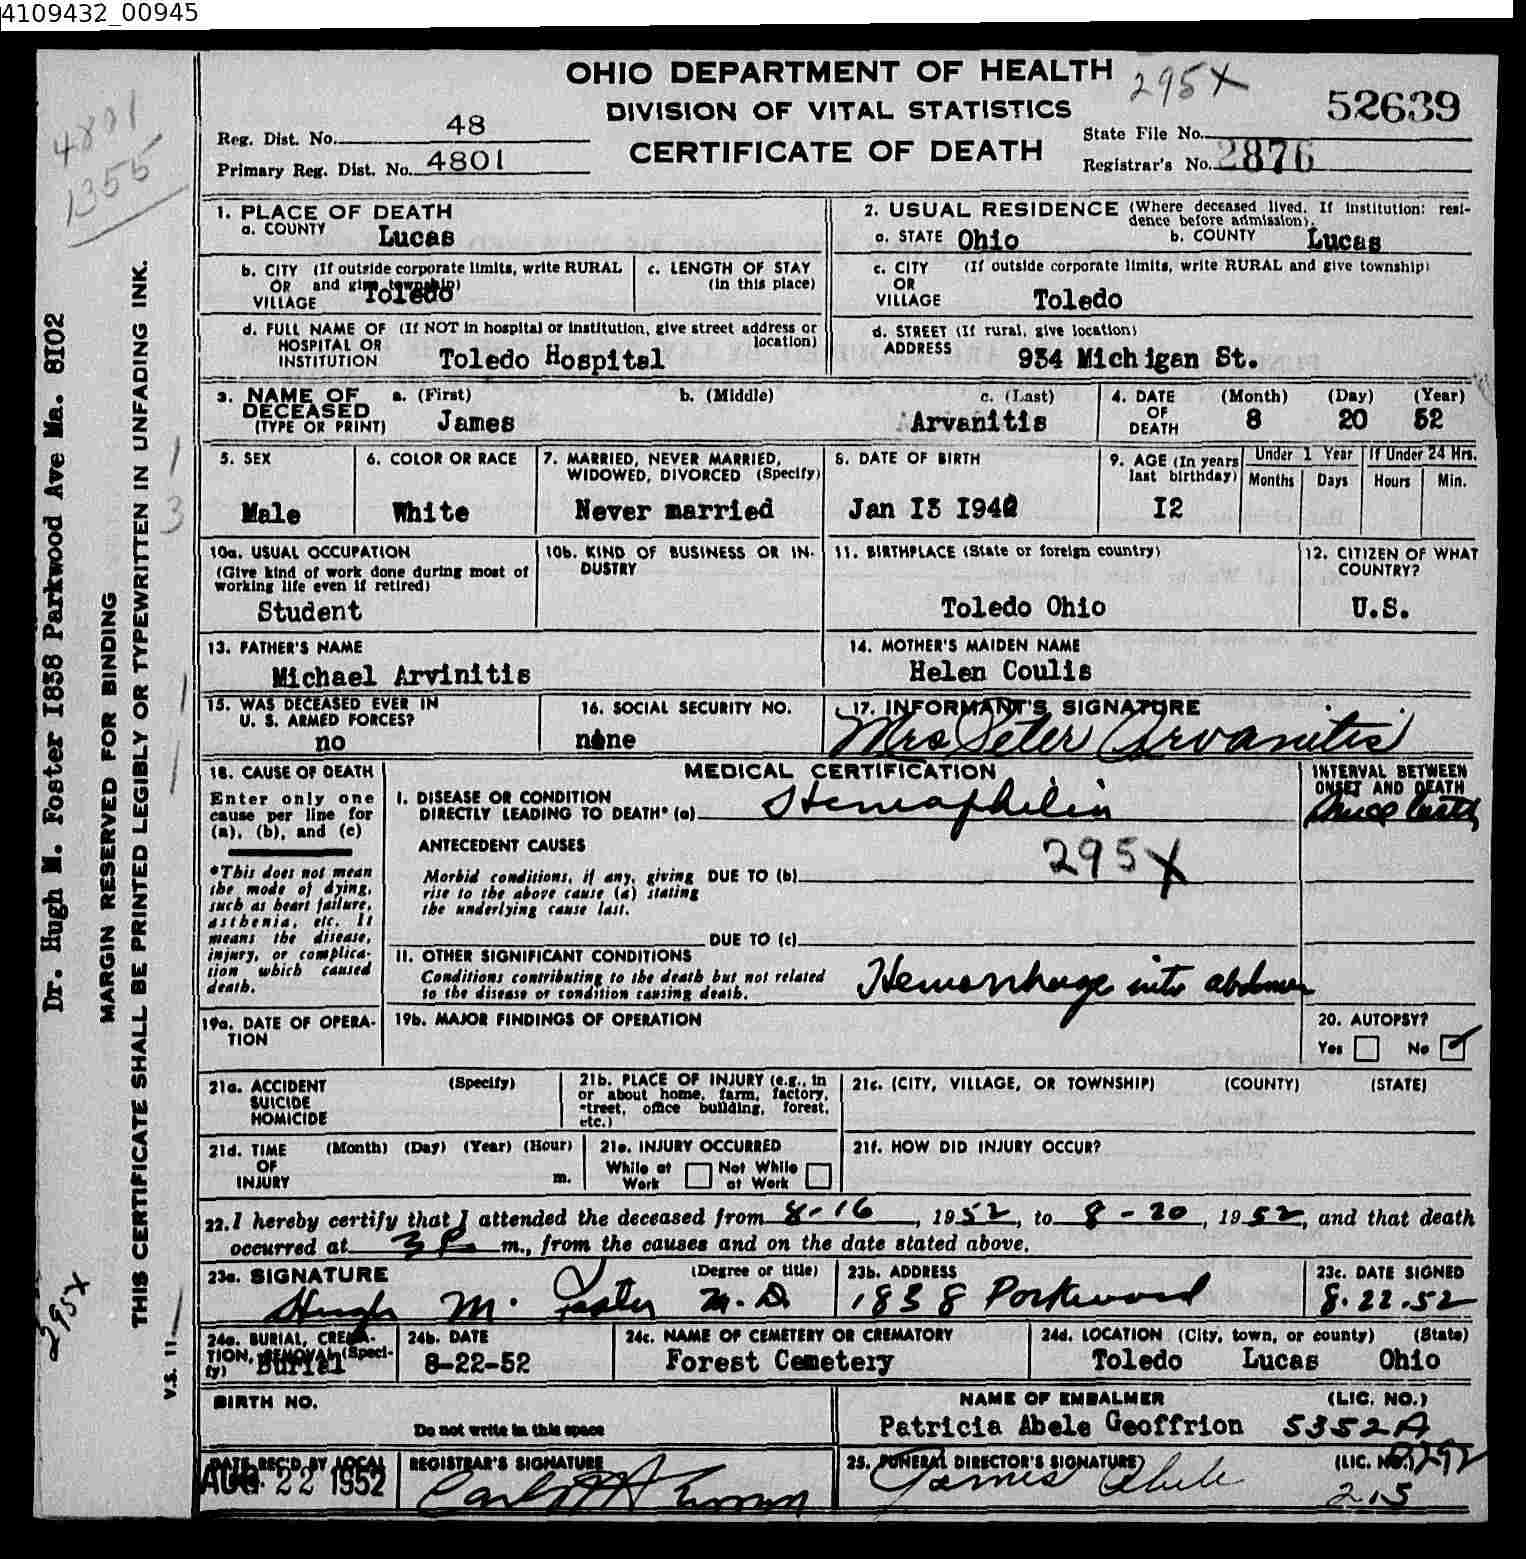 4109432_00945
OHIO DEPARTMENT OF HEALTH
295X
DIVISION OF VITAL STATISTICS
52639
Reg. Dist. No. 48
State File No.
CERTIFICATE OF DEATH
Primary Reg. Dist. No. 4801
Registrar's No. 2876
4801
1355
1. PLACE OF DEATH
a. COUNTY Lucas
2. USUAL RESIDENCE (Where deceased lived. If institution: resi-
dence before admission).
a. STATE Ohio b. COUNTY Lucas
b. CITY (If outside corporate limits, write RURAL
OR and give township)
VILLAGE Toledo
c. LENGTH OF STAY
(in this place)
c. CITY (If outside corporate limits, write RURAL and give township)
OR
VILLAGE Toledo
d. FULL NAME OF (If NOT in hospital or institution, give street address or
HOSPITAL OR location)
INSTITUTION Toledo Hospital
d. STREET (If rural, give location)
ADDRESS 934 Michigan St.
3. NAME OF a. (First) b. (Middle) c. (Last)
DECEASED
(TYPE OR PRINT) James Arvanitis
4. DATE (Month) (Day) (Year)
OF
DEATH 8 20 52
5. SEX
Male
6. COLOR OR RACE
White
7. MARRIED, NEVER MARRIED,
WIDOWED, DIVORCED (Specify)
Never married
8. DATE OF BIRTH
Jan I3 I940
9. AGE (In years
last birthday)
I2
Under 1 Year
Months Days
If Under 24 Hrs.
Hours Min.
10a. USUAL OCCUPATION
(Give kind of work done during most of
working life even if retired)
Student
10b. KIND OF BUSINESS OR IN-
DUSTRY
11. BIRTHPLACE (State or foreign country)
Toledo Ohio
12. CITIZEN OF WHAT
COUNTRY?
U.S.
13. FATHER'S NAME
Michael Arvinitis
14. MOTHER'S MAIDEN NAME
Helen Coulis
15. WAS DECEASED EVER IN
U. S. ARMED FORCES?
no
16. SOCIAL SECURITY NO.
none
17. INFORMANT'S SIGNATURE
Mrs Peter Arvanitis
18. CAUSE OF DEATH
Enter only one
cause per line for
(a), (b), and (c)
*This does not mean
the mode of dying,
such as heart failure,
asthenia, etc. It
means the disease,
injury, or complica-
tion which caused
death.
MEDICAL CERTIFICATION
INTERVAL BETWEEN
ONSET AND DEATH
I. DISEASE OR CONDITION
DIRECTLY LEADING TO DEATH* (a) Hemophilia
since birth
ANTECEDENT CAUSES
295X
Morbid conditions, if any, giving DUE TO (b)
rise to the above cause (a) stating
the underlying cause last.
DUE TO (c)
II. OTHER SIGNIFICANT CONDITIONS
Conditions contributing to the death but not related
to the disease or condition causing death.
Hemorrhage into abdomen
19a. DATE OF OPERA-
TION
19b. MAJOR FINDINGS OF OPERATION
20. AUTOPSY?
Yes No
21a. ACCIDENT (Specify)
SUICIDE
HOMICIDE
21b. PLACE OF INJURY (e.g., in
or about home, farm, factory,
street, office building, forest,
etc.)
21c. (CITY, VILLAGE, OR TOWNSHIP) (COUNTY) (STATE)
21d. TIME (Month) (Day) (Year) (Hour)
OF
INJURY m.
21e. INJURY OCCURRED
While at Not While
Work at Work
21f. HOW DID INJURY OCCUR?
22. I hereby certify that I attended the deceased from 8-16, 1952, to 8-20, 1952, and that death
occurred at 3 P m., from the causes and on the date stated above.
23a. SIGNATURE (Degree or title)
Hugh M. Foster M.D.
23b. ADDRESS
1838 Parkwood
23c. DATE SIGNED
8.22.52
24a. BURIAL, CREMA-
TION, REMOVAL (Speci-
fy) Burial
24b. DATE
8-22-52
24c. NAME OF CEMETERY OR CREMATORY
Forest Cemetery
24d. LOCATION (City, town, or county) (State)
Toledo Lucas Ohio
BIRTH NO.
Do not write in this space
NAME OF EMBALMER (LIC. NO.)
Patricia Abele Geoffrion 5352A
DATE REC'D BY LOCAL
AUG 22 1952
REGISTRAR'S SIGNATURE
25. FUNERAL DIRECTOR'S SIGNATURE (LIC. NO.)
James Abele
215
Dr. Hugh M. Foster I838 Parkwood Ave Ma. 8I02
MARGIN RESERVED FOR BINDING
THIS CERTIFICATE SHALL BE PRINTED LEGIBLY OR TYPEWRITTEN IN UNFADING INK.
V.S. 11
295X
1
3